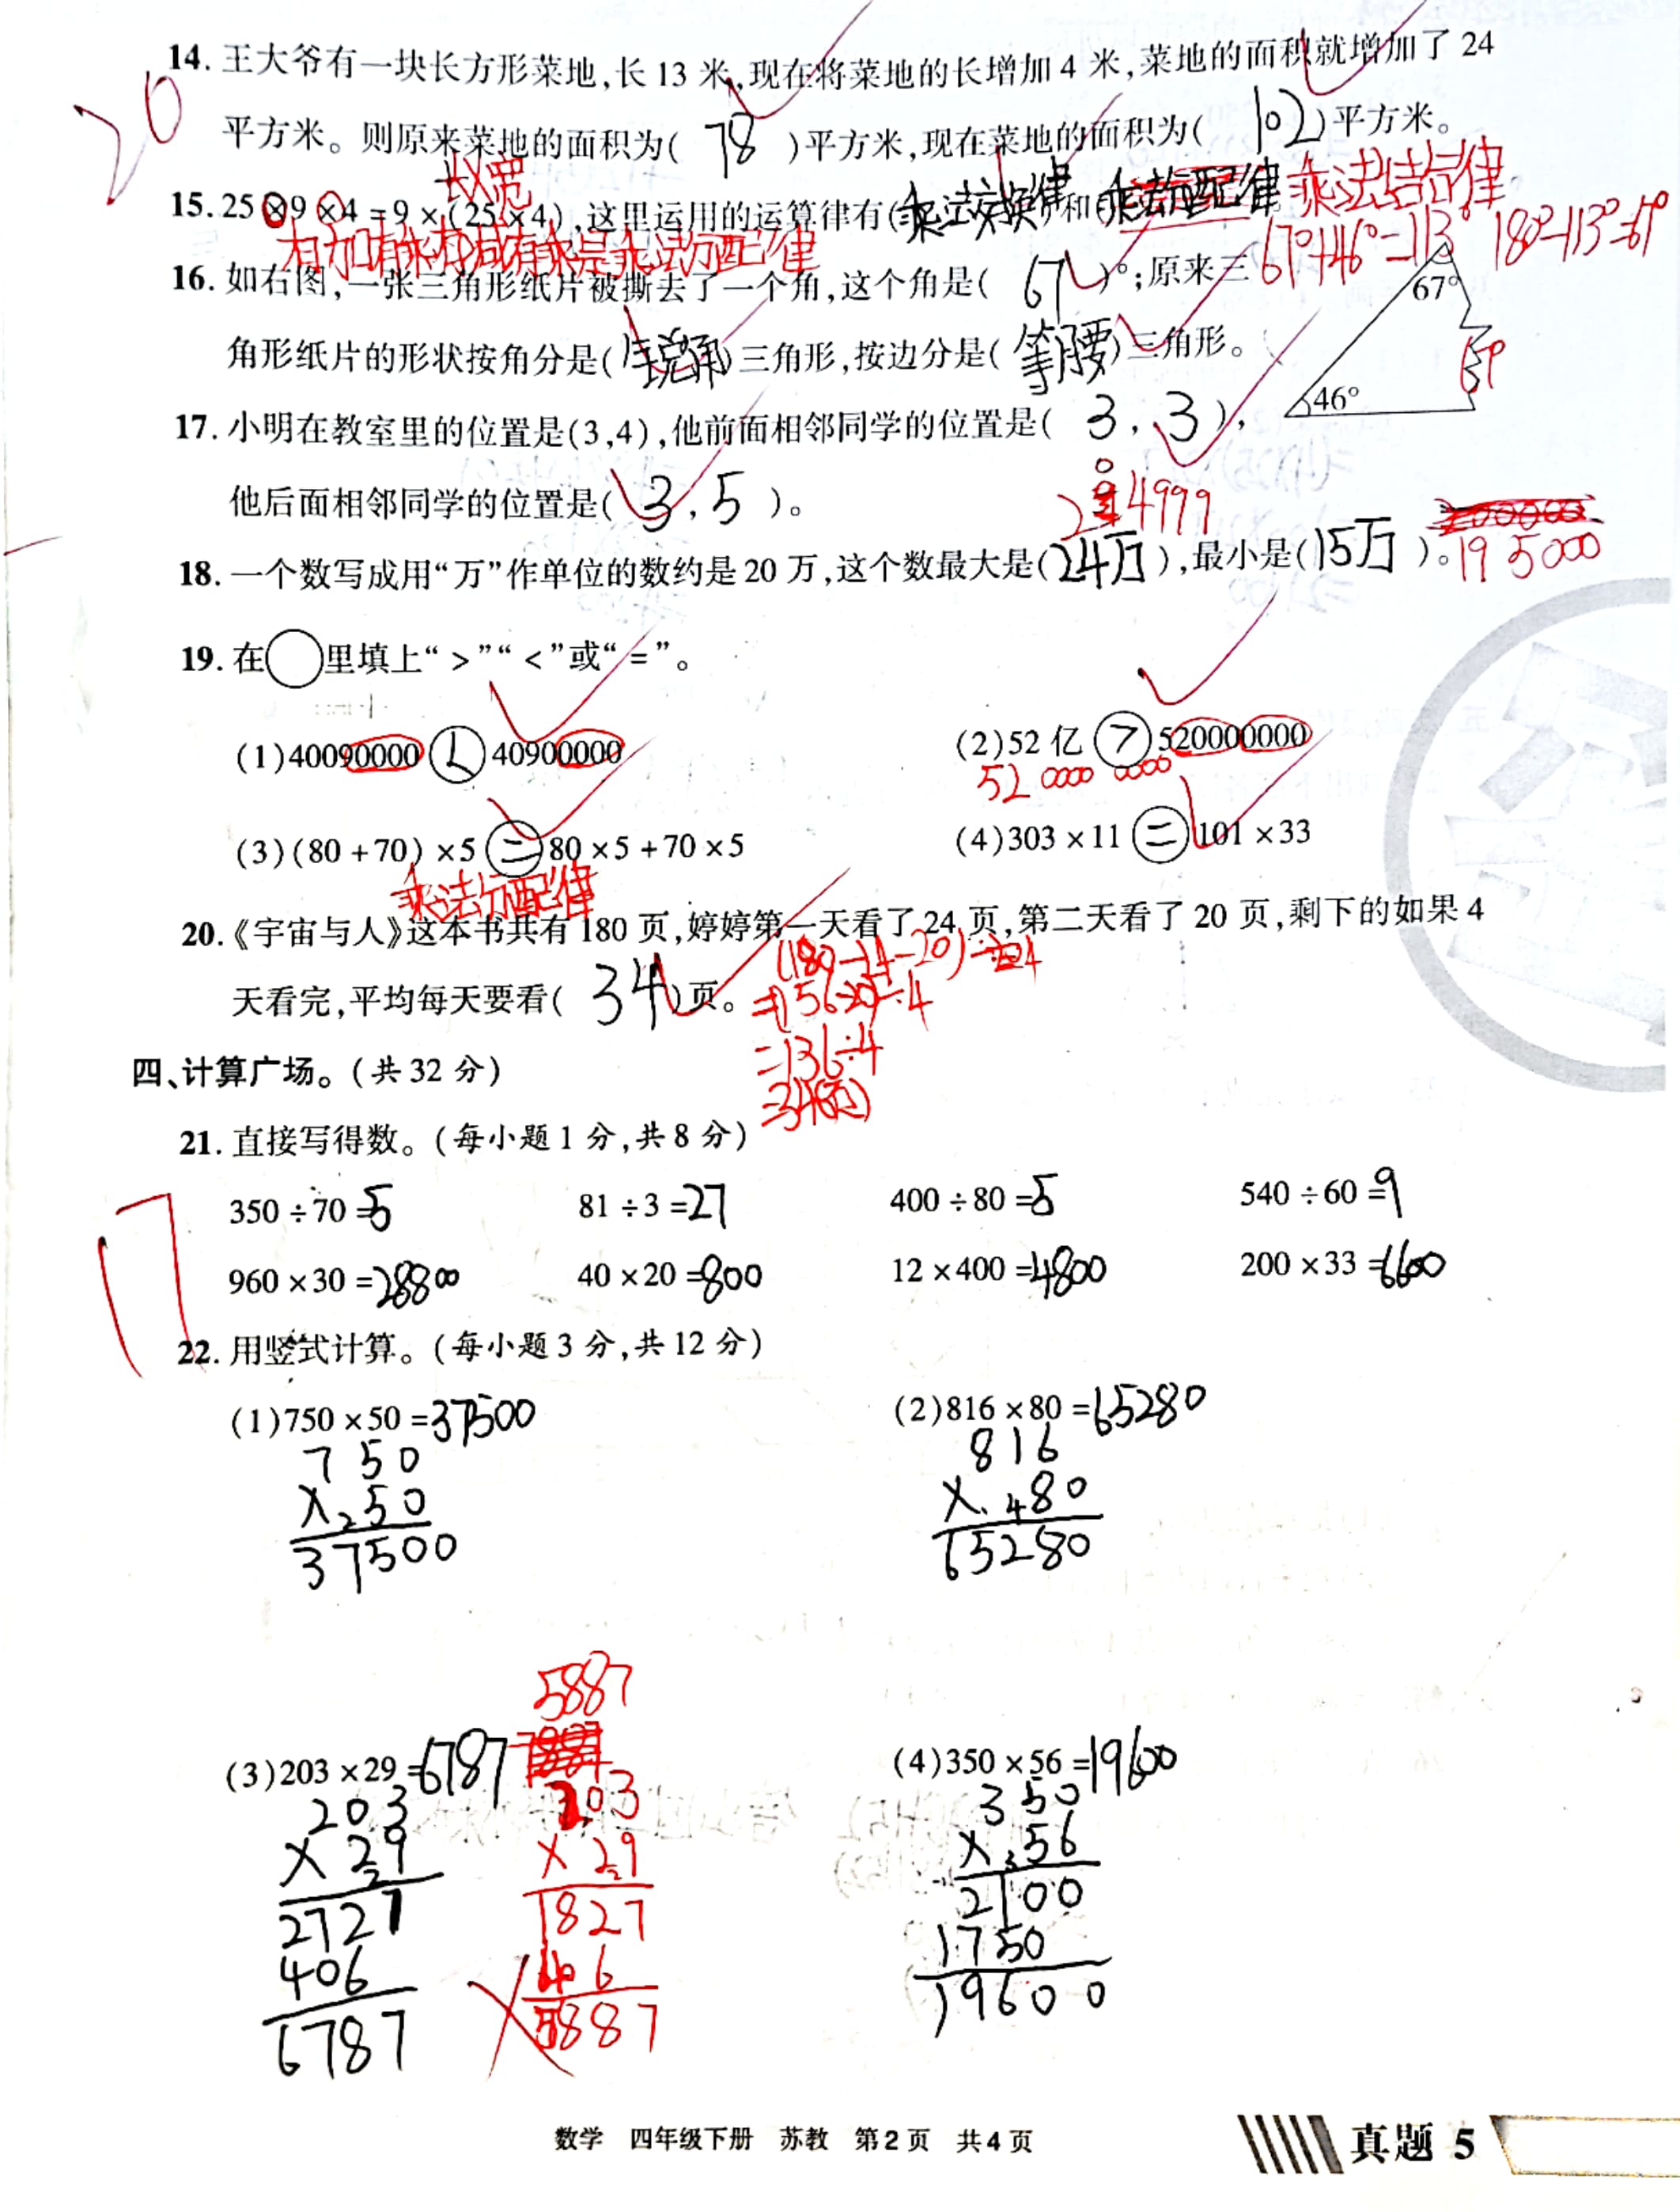 14. 王大爷有一块长方形菜地,长 13 米,现在将菜地的长增加 4 米,菜地的面积就增加了 24
20
平方米。则原来菜地的面积为( 78 )平方米,现在菜地的面积为( 102 )平方米。
长×宽
15. 25×9×4=9×(25×4),这里运用的运算律有(乘法交换律)和(乘法分配律 乘法结合律
有加有乘有减有乘是乘法分配律
67°+46°=113° 180°-113°=67°
16. 如右图,一张三角形纸片被撕去了一个角,这个角是( 67 )°;原来三
67°
角形纸片的形状按角分是( 锐角 )三角形,按边分是( 等腰 )三角形。
46°
17. 小明在教室里的位置是(3,4),他前面相邻同学的位置是( 3,3 ),
他后面相邻同学的位置是( 3,5 )。
204999
18. 一个数写成用“万”作单位的数约是 20 万,这个数最大是(24万),最小是(15万)。
195000
19. 在○里填上“>”“<”或“=”。
(1)40090000 < 40900000
(2)52 亿 > 520000000
52 0000 0000
(3)(80+70)×5 = 80×5+70×5
(4)303×11 = 101×33
乘法分配律
20.《宇宙与人》这本书共有 180 页,婷婷第一天看了 24 页,第二天看了 20 页,剩下的如果 4
天看完,平均每天要看( 34 )页。
=136÷4
四、计算广场。(共 32 分)
21. 直接写得数。(每小题 1 分,共 8 分)
350÷70=5 81÷3=27 400÷80=5 540÷60=9
17
960×30=28800 40×20=800 12×400=4800 200×33=6600
22. 用竖式计算。(每小题 3 分,共 12 分)
(1)750×50=37500
750
×50
2
37500
(2)816×80=65280
816
×80
4
65280
5887
(3)203×29=6787
203
×29
2
2727
406
6787
203
×29
2
1827
406
5887
(4)350×56=19600
350
×56
3
2100
1750
19600
数学 四年级下册 苏教 第2页 共4页
真题 5